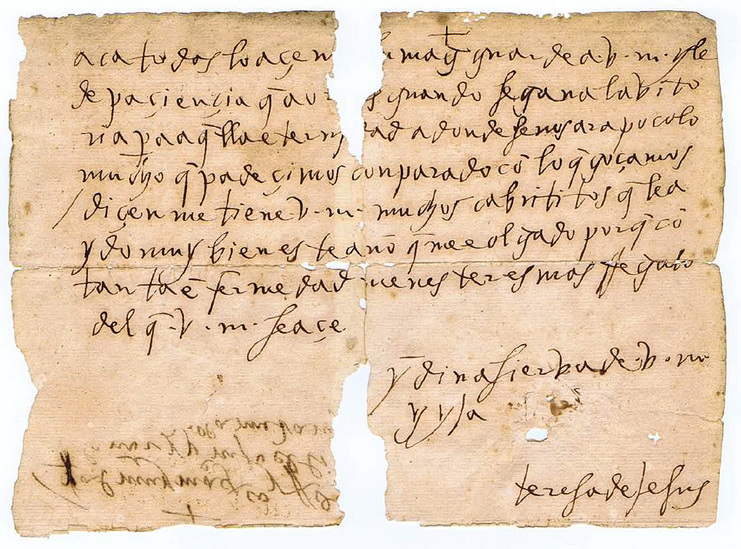 acatodos lo açen su mag guarde a. v. m. y le
de paçençia q aora es quando se gana la vito
ria pa aqlla eternydad adonde se nos ara poco lo
mucho q padeçimos conparado cō lo q goçamos
diçenme tiene v. m. muchos cabrititos q le a
ydo muy bien este año q me e olgado porq cō
tanta ēfermedad menester es mas rregalo
del q. v. m. se açe
yndina sierva de. v. m.
y yja
teresa de jesus